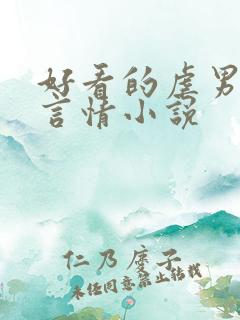 好看的虐男
言情小说
仁乃度子
未经同意禁止转载